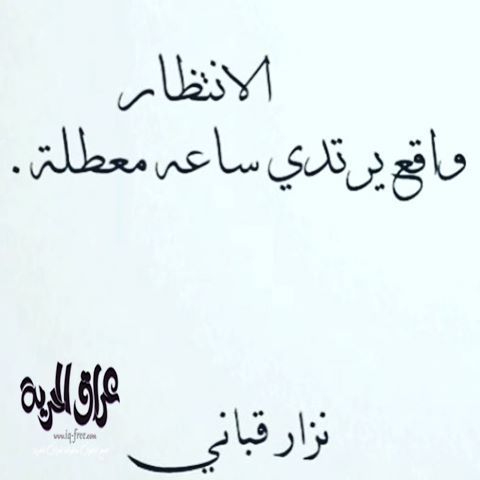 الانتظار
واقع يرتدي ساعه معطلة .
عراق الحرية
www.iq-free.com
نزار قباني